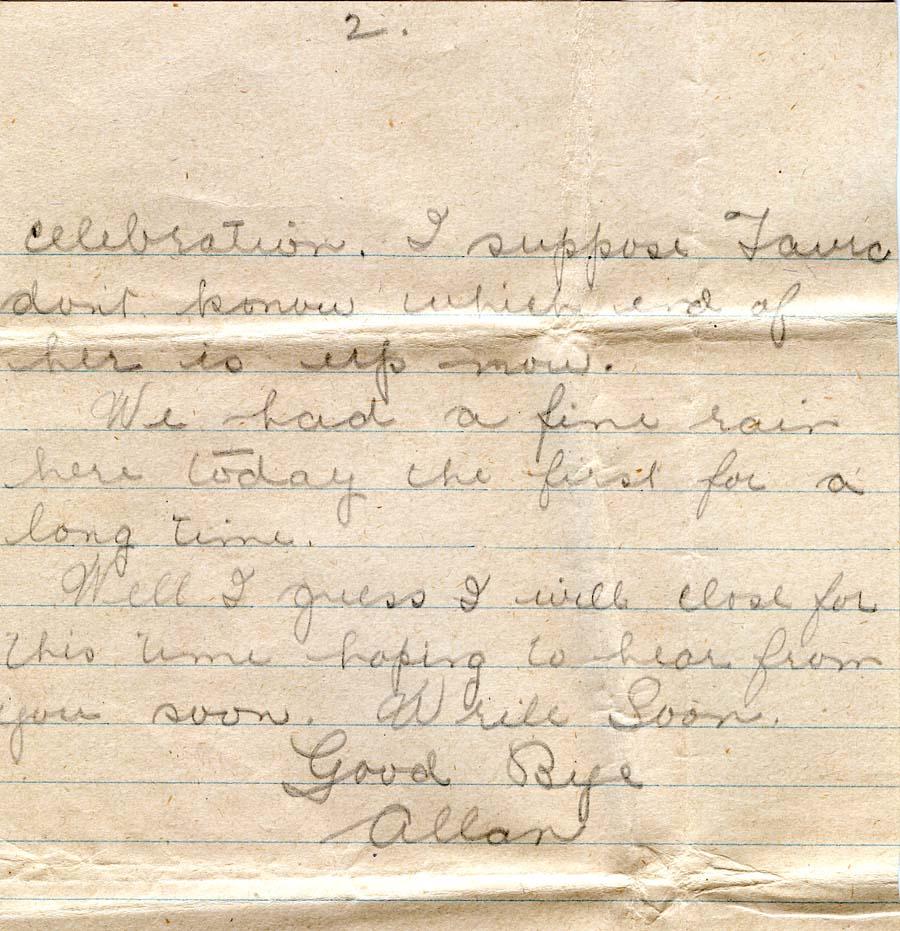 2.
celebration. I suppose
dont know which end of
her is up now.
We had a fine rain
here today the first for a
long time.
Well I guess I will close for
this time hoping to hear from
you soon. Write Soon.
Good Bye
Allan